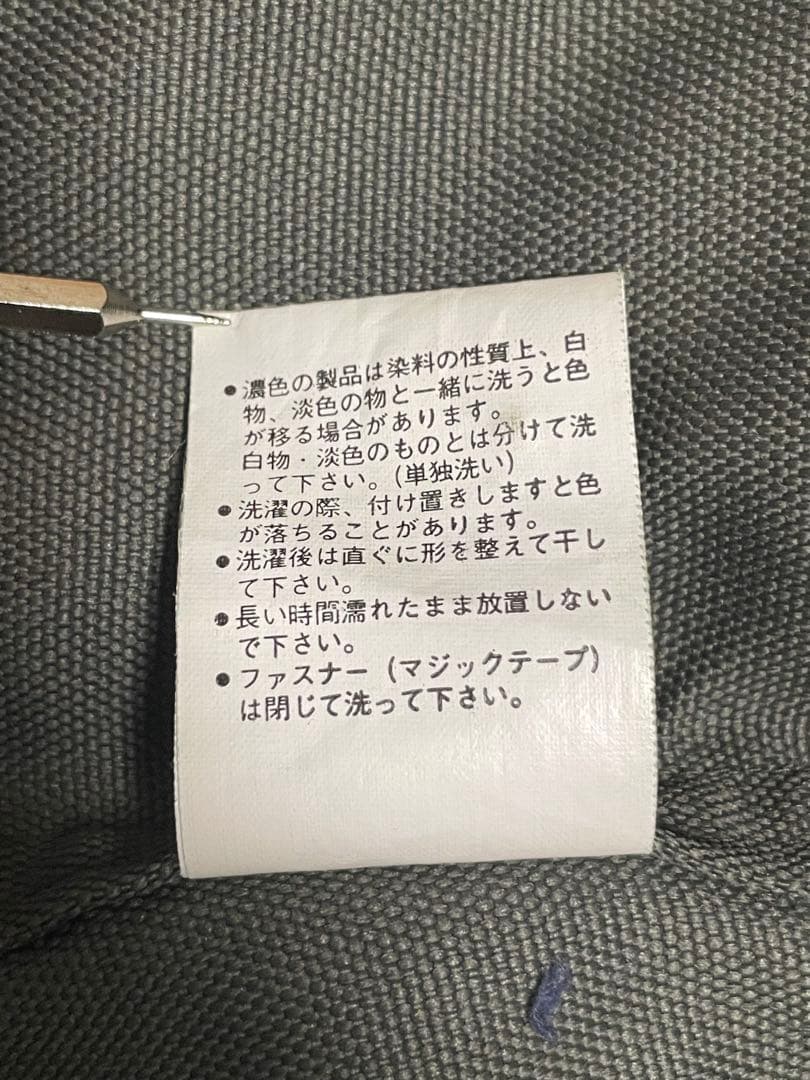 ●濃色の製品は染料の性質上、白
物、淡色の物と一緒に洗うと色
が移る場合があります。
白物・淡色のものとは分けて洗
って下さい。(単独洗い)
●洗濯の際、付け置きしますと色
が落ちることがあります。
●洗濯後は直ぐに形を整えて干し
て下さい。
●長い時間濡れたまま放置しない
で下さい。
●ファスナー（マジックテープ）
は閉じて洗って下さい。